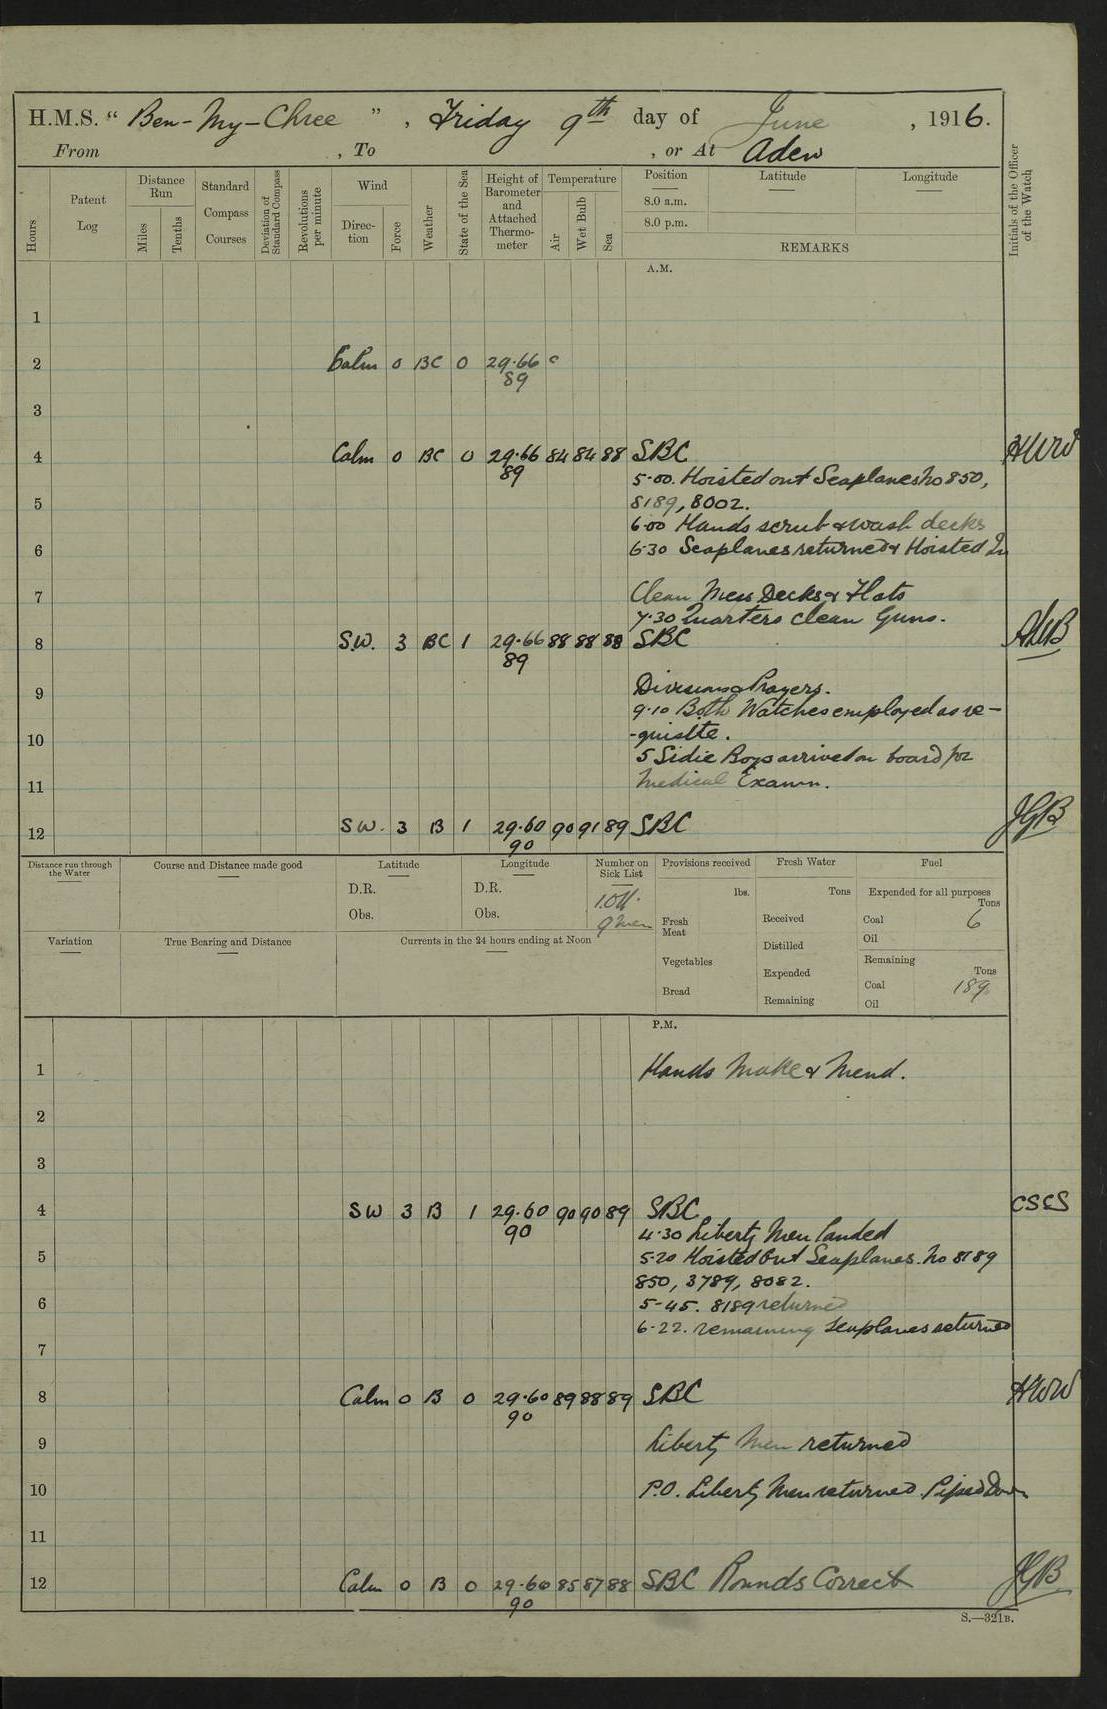 H.M.S. “ Ben-My-Chree ” , Friday 9th day of June , 1916.
From , To , or At Aden
Hours
Patent Log
Distance Run
Miles
Tenths
Standard Compass Courses
Deviation of Standard Compass
Revolutions per minute
Wind
Direction
Force
Weather
State of the Sea
Height of Barometer and Attached Thermometer
Temperature
Air
Wet Bulb
Sea
Position
8.0 a.m.
8.0 p.m.
Latitude
Longitude
REMARKS
Initials of the Officer of the Watch
A.M.
1
2 Calm 0 BC 0 29.66
89
3
4 Calm 0 BC 0 29.66 84 84 88 SBC HWW
89
5.00. Hoisted out Seaplanes No 850,
5 8189, 8002.
6.00 Hands scrub & wash decks
6 6.30 Seaplanes returned & Hoisted In
7 Clean Mess Decks & Flats
7.30 Quarters clean Guns.
8 S.W. 3 BC 1 29.66 88 88 88 SBC
89
9 Divisions & Prayers.
9.10 Both Watches employed as re-
10 -quisite.
5 Sidie Boys arrived on board for
11 Medical Examn.
12 SW. 3 B 1 29.60 90 91 89 SBC JGB
90
Distance run through the Water
Course and Distance made good
Latitude
D.R.
Obs.
Longitude
D.R.
Obs.
Number on Sick List
1 Off.
9 Men
Provisions received
lbs.
Fresh Meat
Vegetables
Bread
Fresh Water
Tons
Received
Distilled
Expended
Remaining
Fuel
Expended for all purposes
Tons
Coal 6
Oil
Remaining
Tons
Coal 189
Oil
Variation
True Bearing and Distance
Currents in the 24 hours ending at Noon
P.M.
1 Hands Make & Mend.
2
3
4 SW 3 B 1 29.60 90 90 89 SBC CSCS
90
4.30 Liberty Men landed
5 5.20 Hoisted Out Seaplanes. No 8189
850, 3789, 8082.
6 5-45. 8189 returned
6-22. remaining seaplanes returned
7
8 Calm 0 B 0 29.60 89 88 89 SBC HWW
90
9 Liberty Men returned
10 P.O. Liberty Men returned. Piped Down
11
12 Calm 0 B 0 29.60 85 87 88 SBC Rounds Correct JGB
90
S.—321B.